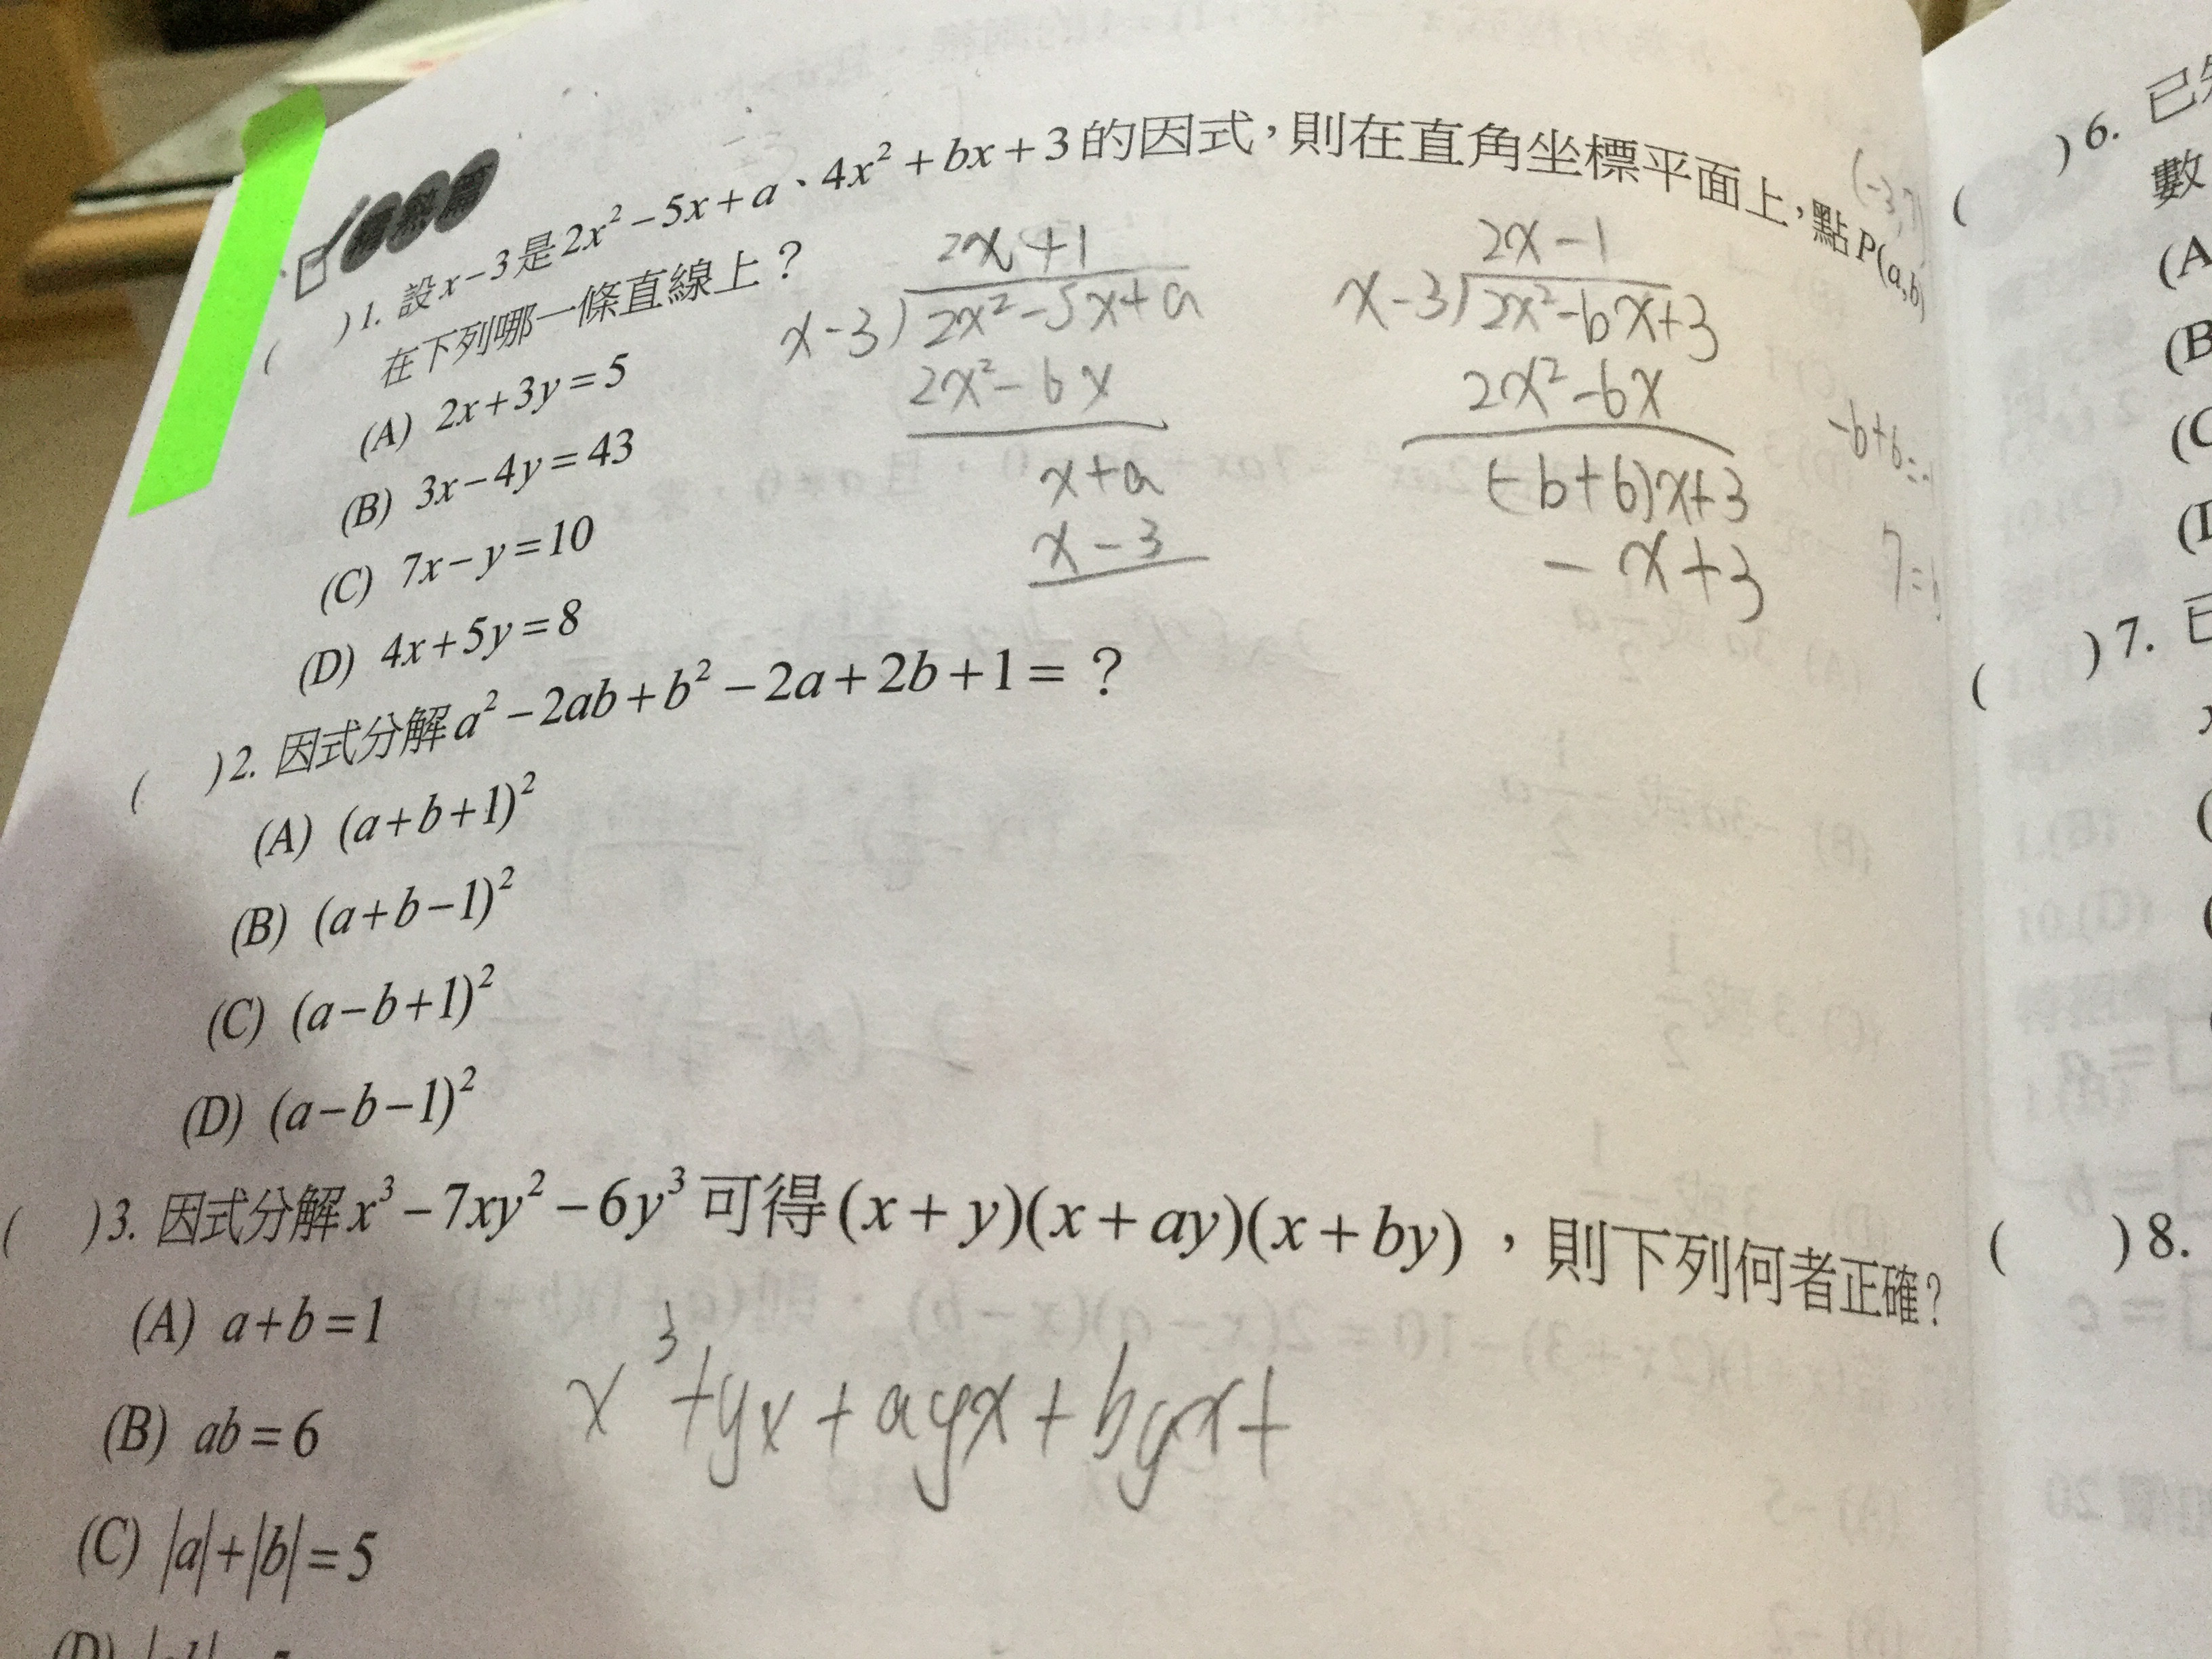 ( )1. 設x-3是2x²-5x+a、4x²+bx+3的因式，則在直角坐標平面上，點P(a,b)
在下列哪一條直線上？
(A) 2x+3y=5
(B) 3x-4y=43
(C) 7x-y=10
(D) 4x+5y=8
2x+1
x-3)2x²-5x+a
2x²-6x
x+a
x-3
(-3,7)
2x-1
x-3)2x²-bx+3
2x²-6x
(-b+6)x+3
-x+3
-b+6=-
7=b
( )2. 因式分解a²-2ab+b²-2a+2b+1=？
(A) (a+b+1)²
(B) (a+b-1)²
(C) (a-b+1)²
(D) (a-b-1)²
( )3. 因式分解x³-7xy²-6y³可得(x+y)(x+ay)(x+by)，則下列何者正確?
(A) a+b=1
(B) ab=6
(C) |a|+|b|=5
x³+yx+ayx+byx+
( )6. 已
數
(A
(B
(C
( )7.
( )8.